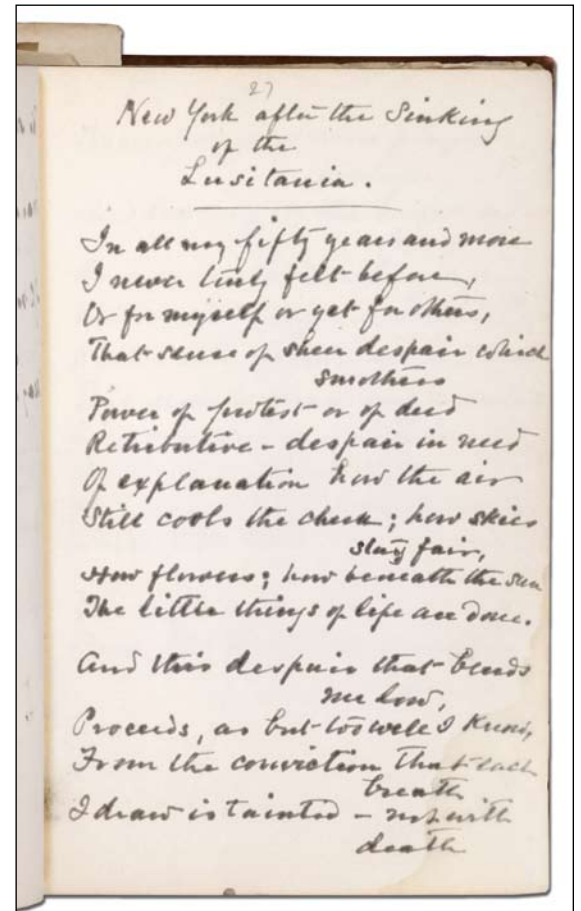 27
New York after the Sinking
of the
Lusitania.
In all my fifty years and more
I never truly felt before,
Or for myself or yet for others,
That sense of sheer despair which
smothers
Power of protest or of deed
Retributive – despair in need
Of explanation how the air
Still cools the cheek; how skies
stay fair,
How flowers; how beneath the sun
The little things of life are done.
And this despair that bends
me low,
Proceeds, as but too well I know,
From the conviction that each
breath
I draw is tainted – not with
death